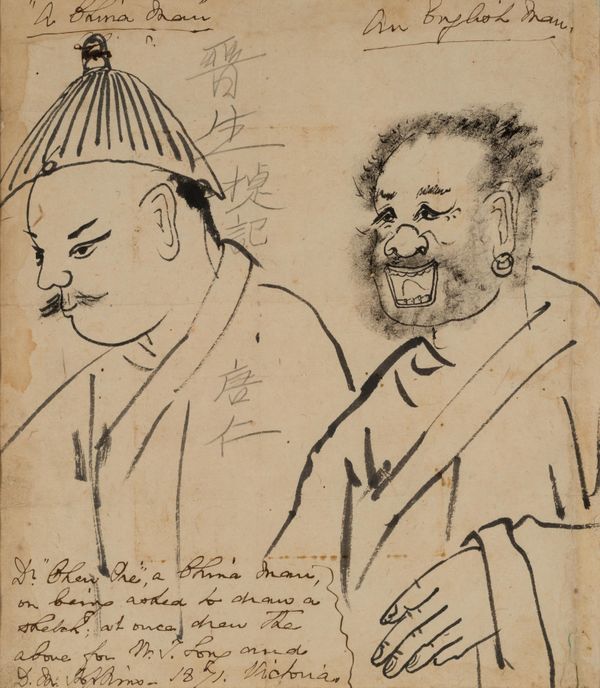 "A China Man"
An English Man.
晉生楨記
唐仁
Dr "Chen", a China Man,
on being asked to draw a
sketch, at once drew the
above for W. J. Long and
D. M. 1871. Victoria